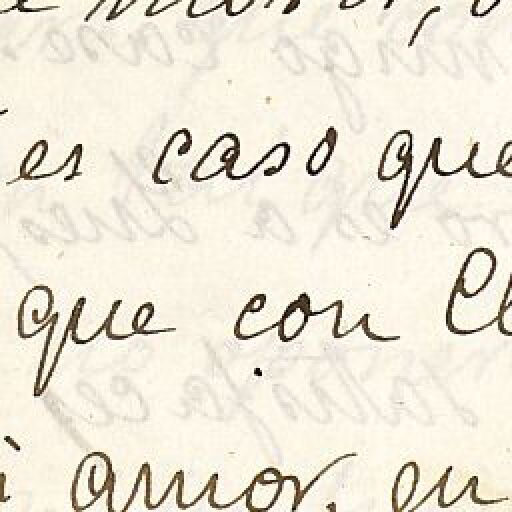 es caso que
que con
amor, en